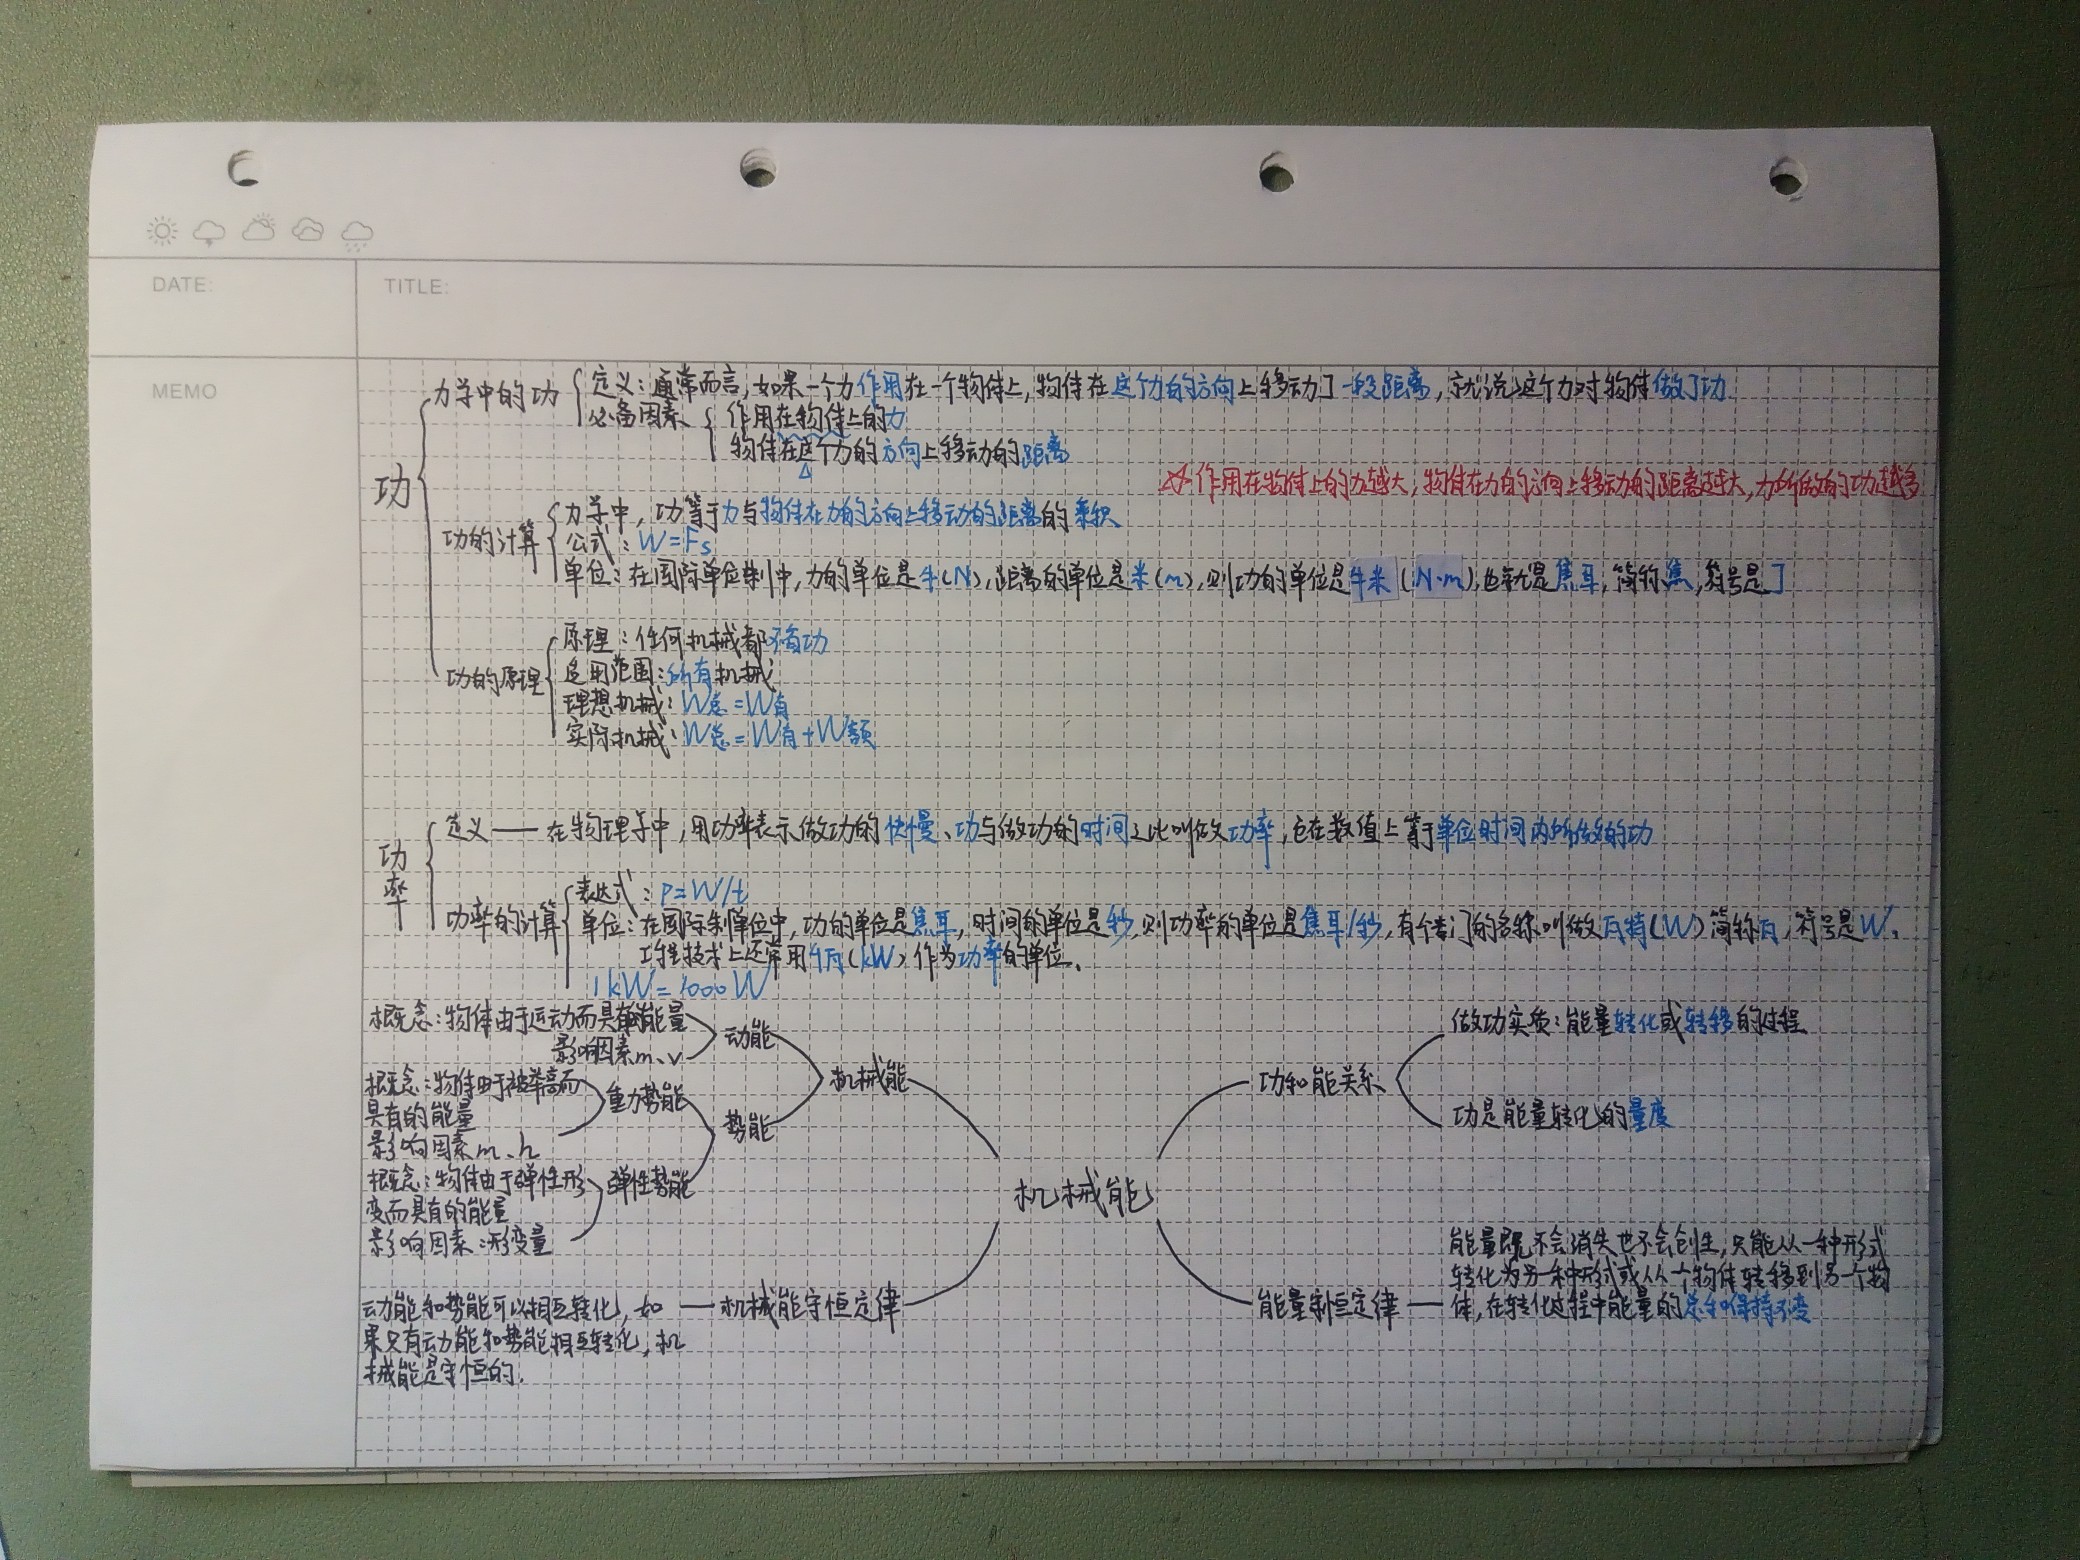 DATE:
TITLE:
MEMO
功
力学中的功
定义：通常而言，如果一个力作用在一个物体上，物体在这个力的方向上移动了一段距离，就说这个力对物体做了功
必备因素
作用在物体上的力
物体在这个力的方向上移动的距离
☆作用在物体上的力越大，物体在力的方向上移动的距离越大，力所做的功越多
功的计算
力学中，功等于力与物体在力的方向上移动的距离的乘积
公式：W=Fs
单位：在国际单位制中，力的单位是牛(N)，距离的单位是米(m)，则功的单位是牛米(N·m)，也就是焦耳，简称焦，符号是J
功的原理
原理：任何机械都不省功
适用范围：所有机械
理想机械：W总=W有
实际机械：W总=W有+W额
功率
定义——在物理学中，用功率表示做功的快慢、功与做功的时间之比叫做功率，它在数值上等于单位时间内所做的功
功率的计算
表达式：P=W/t
单位：在国际制单位中，功的单位是焦耳，时间的单位是秒，则功率的单位是焦耳/秒，有个专门的名称叫做瓦特(W)简称瓦，符号是W、
工程技术上还常用千瓦(kW)作为功率的单位、
1kW=1000W
概念：物体由于运动而具有的能量
影响因素m、v
动能
概念：物体由于被举高而
具有的能量
影响因素m、h
重力势能
概念：物体由于弹性形
变而具有的能量
影响因素：形变量
弹性势能
势能
机械能
机械能
动能和势能可以相互转化，如
果只有动能和势能相互转化，机
械能是守恒的.
机械能守恒定律
功和能关系
做功实质：能量转化或转移的过程
功是能量转化的量度
能量守恒定律
能量既不会消失也不会创生，只能从一种形式
转化为另一种形式或从一个物体转移到另一个物
体，在转化过程中能量的总和保持不变